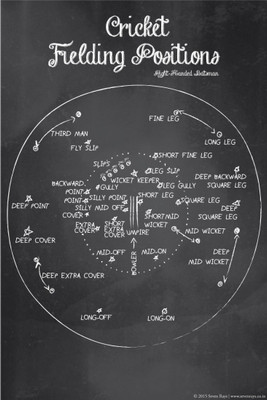 Cricket
Fielding Positions
Right-Handed Batsman
FINE LEG
THIRD MAN
LONG LEG
FLY SLIP
SLIPS
SHORT FINE LEG
WICKET KEEPER
LEG SLIP
DEEP BACKWARD
SQUARE LEG
BACKWARD
POINT
GULLY
LEG GULLY
SILLY
POINT
SHORT LEG
SQUARE LEG
DEEP POINT
POINT
SILLY MID OFF
DEEP
SQUARE LEG
COVER
SHORT MID
WICKET
EXTRA
COVER
SHORT
EXTRA
COVER
UMPIRE
MID WICKET
DEEP COVER
MID-OFF
MID-ON
DEEP
MID WICKET
BOWLER
DEEP EXTRA COVER
LONG-OFF
LONG-ON